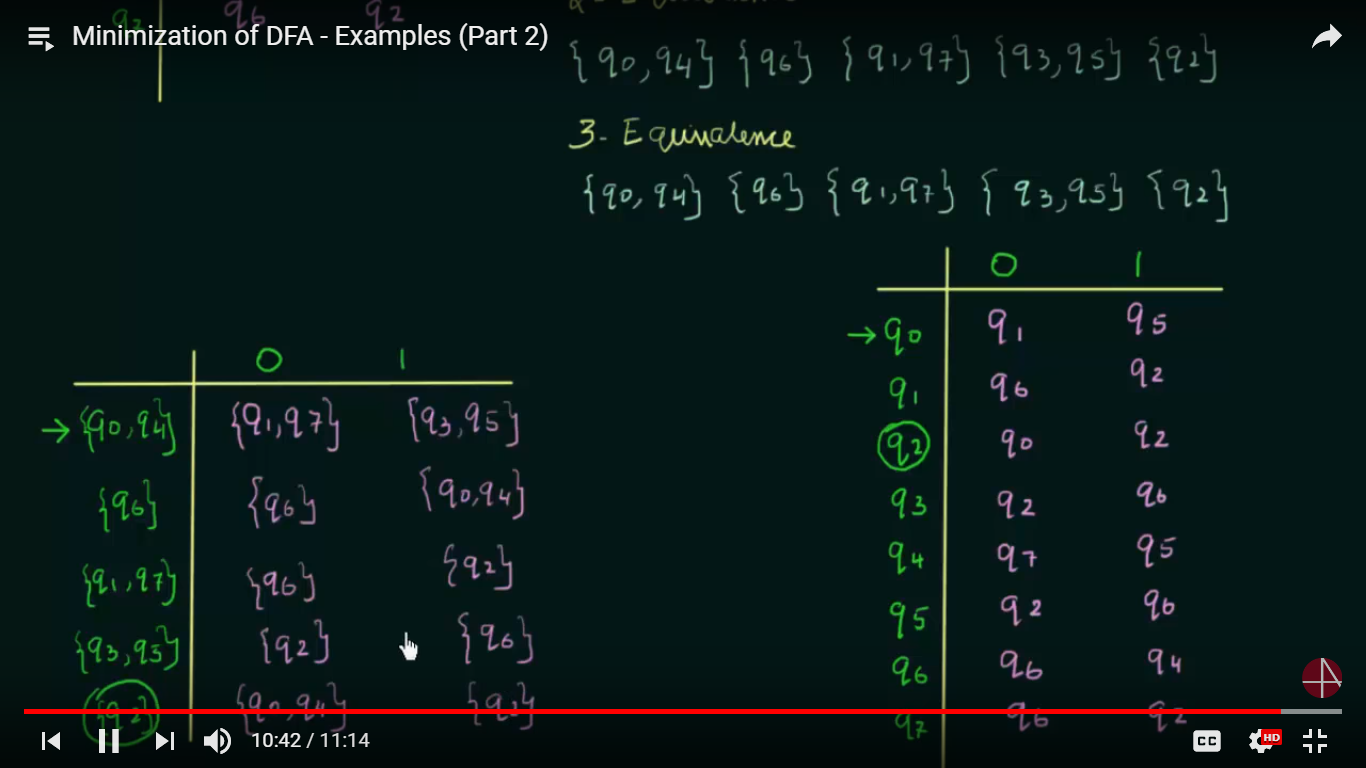 q2 q6 q2
Minimization of DFA - Examples (Part 2)
{q0,q4} {q6} {q1,q7} {q3,q5} {q2}
3- Equivalence
{q0,q4} {q6} {q1,q7} {q3,q5} {q2}
0 1
→{q0,q4} {q1,q7} {q3,q5}
{q6} {q6} {q0,q4}
{q1,q7} {q6} {q2}
{q3,q5} {q2} {q6}
{q2} {q0,q4} {q2}
0 1
→q0 q1 q5
q1 q6 q2
q2 q0 q2
q3 q2 q6
q4 q7 q5
q5 q2 q6
q6 q6 q4
q7 q6 q2
10:42 / 11:14
CC HD